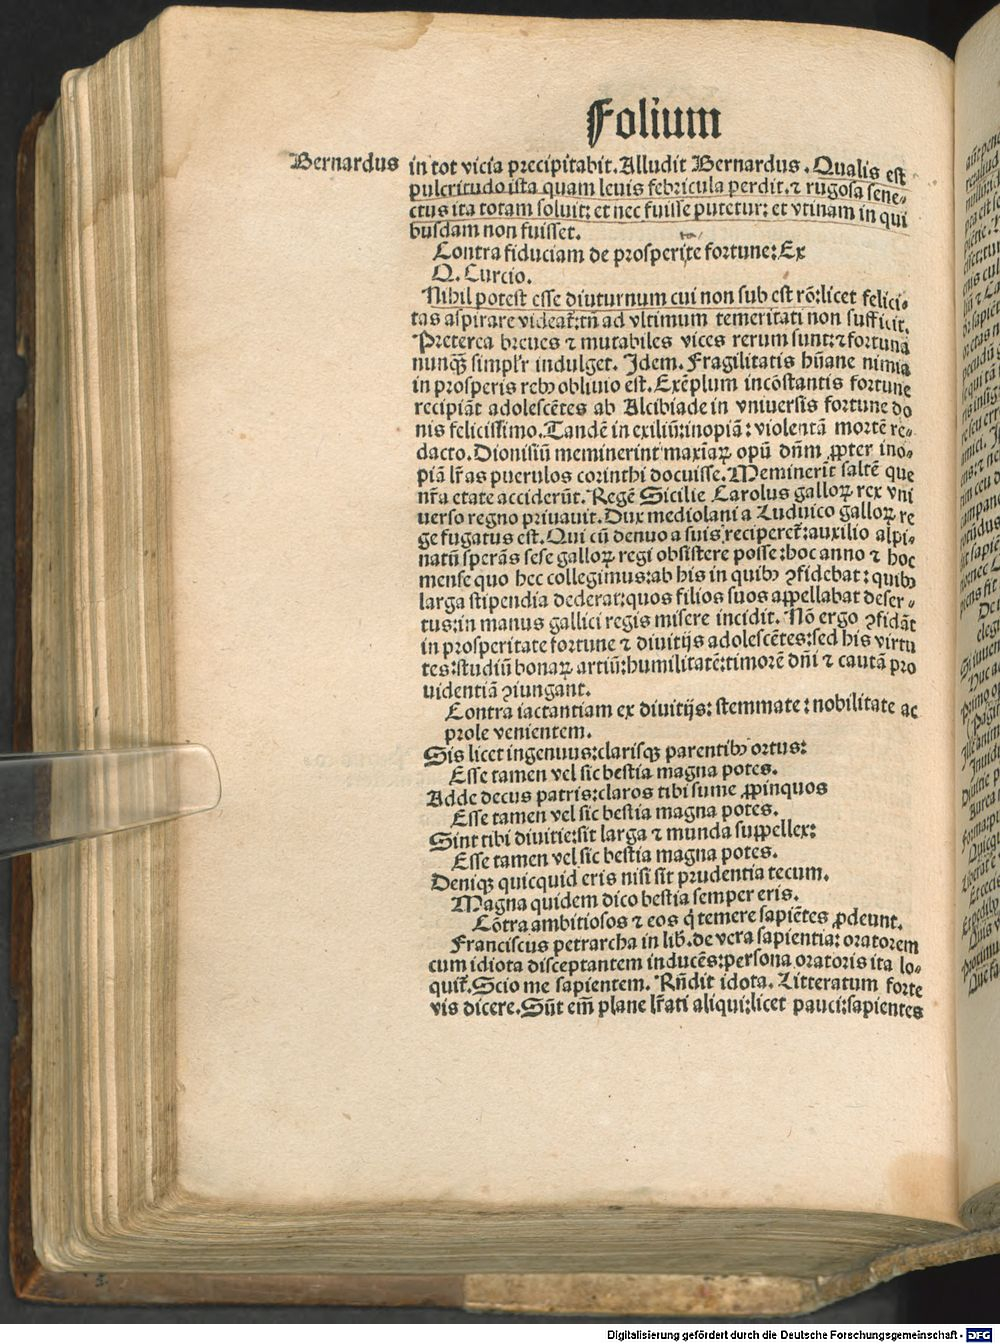 Folium
Bernardus
in tot vicia precipitabit. Alludit Bernardus. Qualis est
pulcritudo ista quam leuis febricula perdit. ⁊ rugosa sene-
ctus ita totam soluit: et nec fuisse putetur: et vtinam in qui
busdam non fuisset.
Contra fiduciam de prosperite fortune: Ex
ta
Q. Curcio.
Nihil potest esse diuturnum cui non sub est rõ: licet felici-
tas aspirare videat᷑: tñ ad vltimum temeritati non sufficit.
Preterea breues ⁊ mutabiles vices rerum sunt: ⁊ fortuna
nunqꝫ simpl'r indulget. Idem. Fragilitatis hũane nimia
in prosperis rebꝰ obliuio est. Exẽplum incõstantis fortune
recipiãt adolescẽtes ab Alcibiade in vniuersis fortune do
nis felicissimo. Tandẽ in exiliũ: inopiã: violentã mortẽ re-
dacto. Dionisiũ meminerint maxĩaꝝ opũ dñm ꝓpter ino-
piã lr̃as puerulos corinthi docuisse. Meminerit saltẽ que
nr̃a etate acciderũt. Regẽ Sicilie Carolus galloꝝ rex vni
uerso regno priuauit. Dux mediolani a Luduico galloꝝ re
ge fugatus est. Qui cũ denuo a suis reciperet᷑: auxilio alpi-
natũ sperãs sese galloꝝ regi obsistere posse: hoc anno ⁊ hoc
mense quo hec collegimus: ab his in quibꝰ ꝯfidebat: quibꝰ
larga stipendia dederat: quos filios suos appellabat deser-
tus: in manus gallici regis misere incidit. Nõ ergo ꝯfidãt
in prosperitate fortune ⁊ diuitijs adolescẽtes: sed his virtu
tes: studiũ bonaꝝ artiũ: humilitatẽ: timorẽ dñi ⁊ cautã pro
uidentiã ꝯiungant.
Contra iactantiam ex diuitijs: stemmate: nobilitate ac
prole venientem.
Sis licet ingenuus: clarisqꝫ parentibꝰ ortus:
Esse tamen vel sic bestia magna potes.
Adde decus patris: claros tibi sume ꝓpinquos
Esse tamen vel sic bestia magna potes.
Sint tibi diuitie: sit larga ⁊ munda suppellex:
Esse tamen vel sic bestia magna potes.
Deniqꝫ quicquid eris nisi sit prudentia tecum.
Magna quidem dico bestia semper eris.
Cõtra ambitiosos ⁊ eos q̇ temere sapiẽtes ꝓdeunt.
Franciscus petrarcha in lib. de vera sapientia: oratorem
cum idiota disceptantem inducẽs: persona oratoris ita lo-
quit᷑. Scio me sapientem. Rñdit idota. Litteratum forte
vis dicere. Sũt em̃ plane lr̃ati aliqui: licet pauci: sapientes
Digitalisierung gefördert durch die Deutsche Forschungsgemeinschaft - DFG